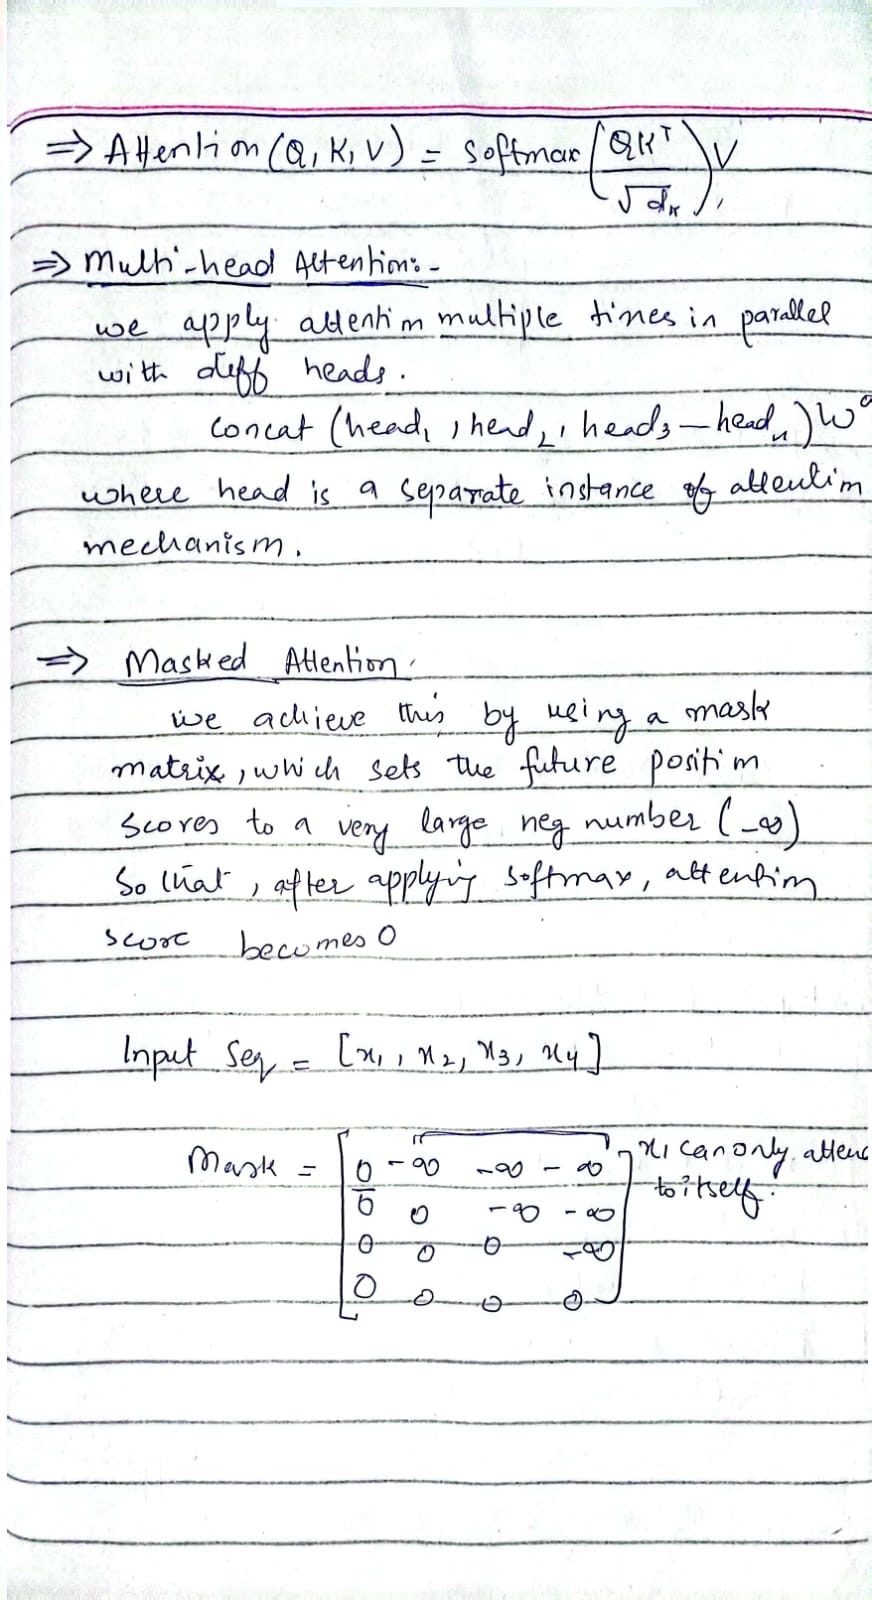 ⇒ Attention (Q, K, V) = softmax (QKᵀ / √dₖ) V
⇒ Multi-head Attention:-
we apply attention multiple times in parallel
with diff heads.
concat (head₁, head₂, head₃ — headₙ) Wᵒ
where head is a separate instance of attention
mechanism.
⇒ Masked Attention.
we achieve this by using a mask
matrix, which sets the future position
scores to a very large neg number (-∞)
So that, after applying softmax, attention
score becomes 0
Input Seq = [x₁, x₂, x₃, x₄]
Mask = [0 -∞ -∞ -∞ x₁ can only attend
0 0 -∞ -∞ to itself.
0 0 0 -∞
0 0 0 0]